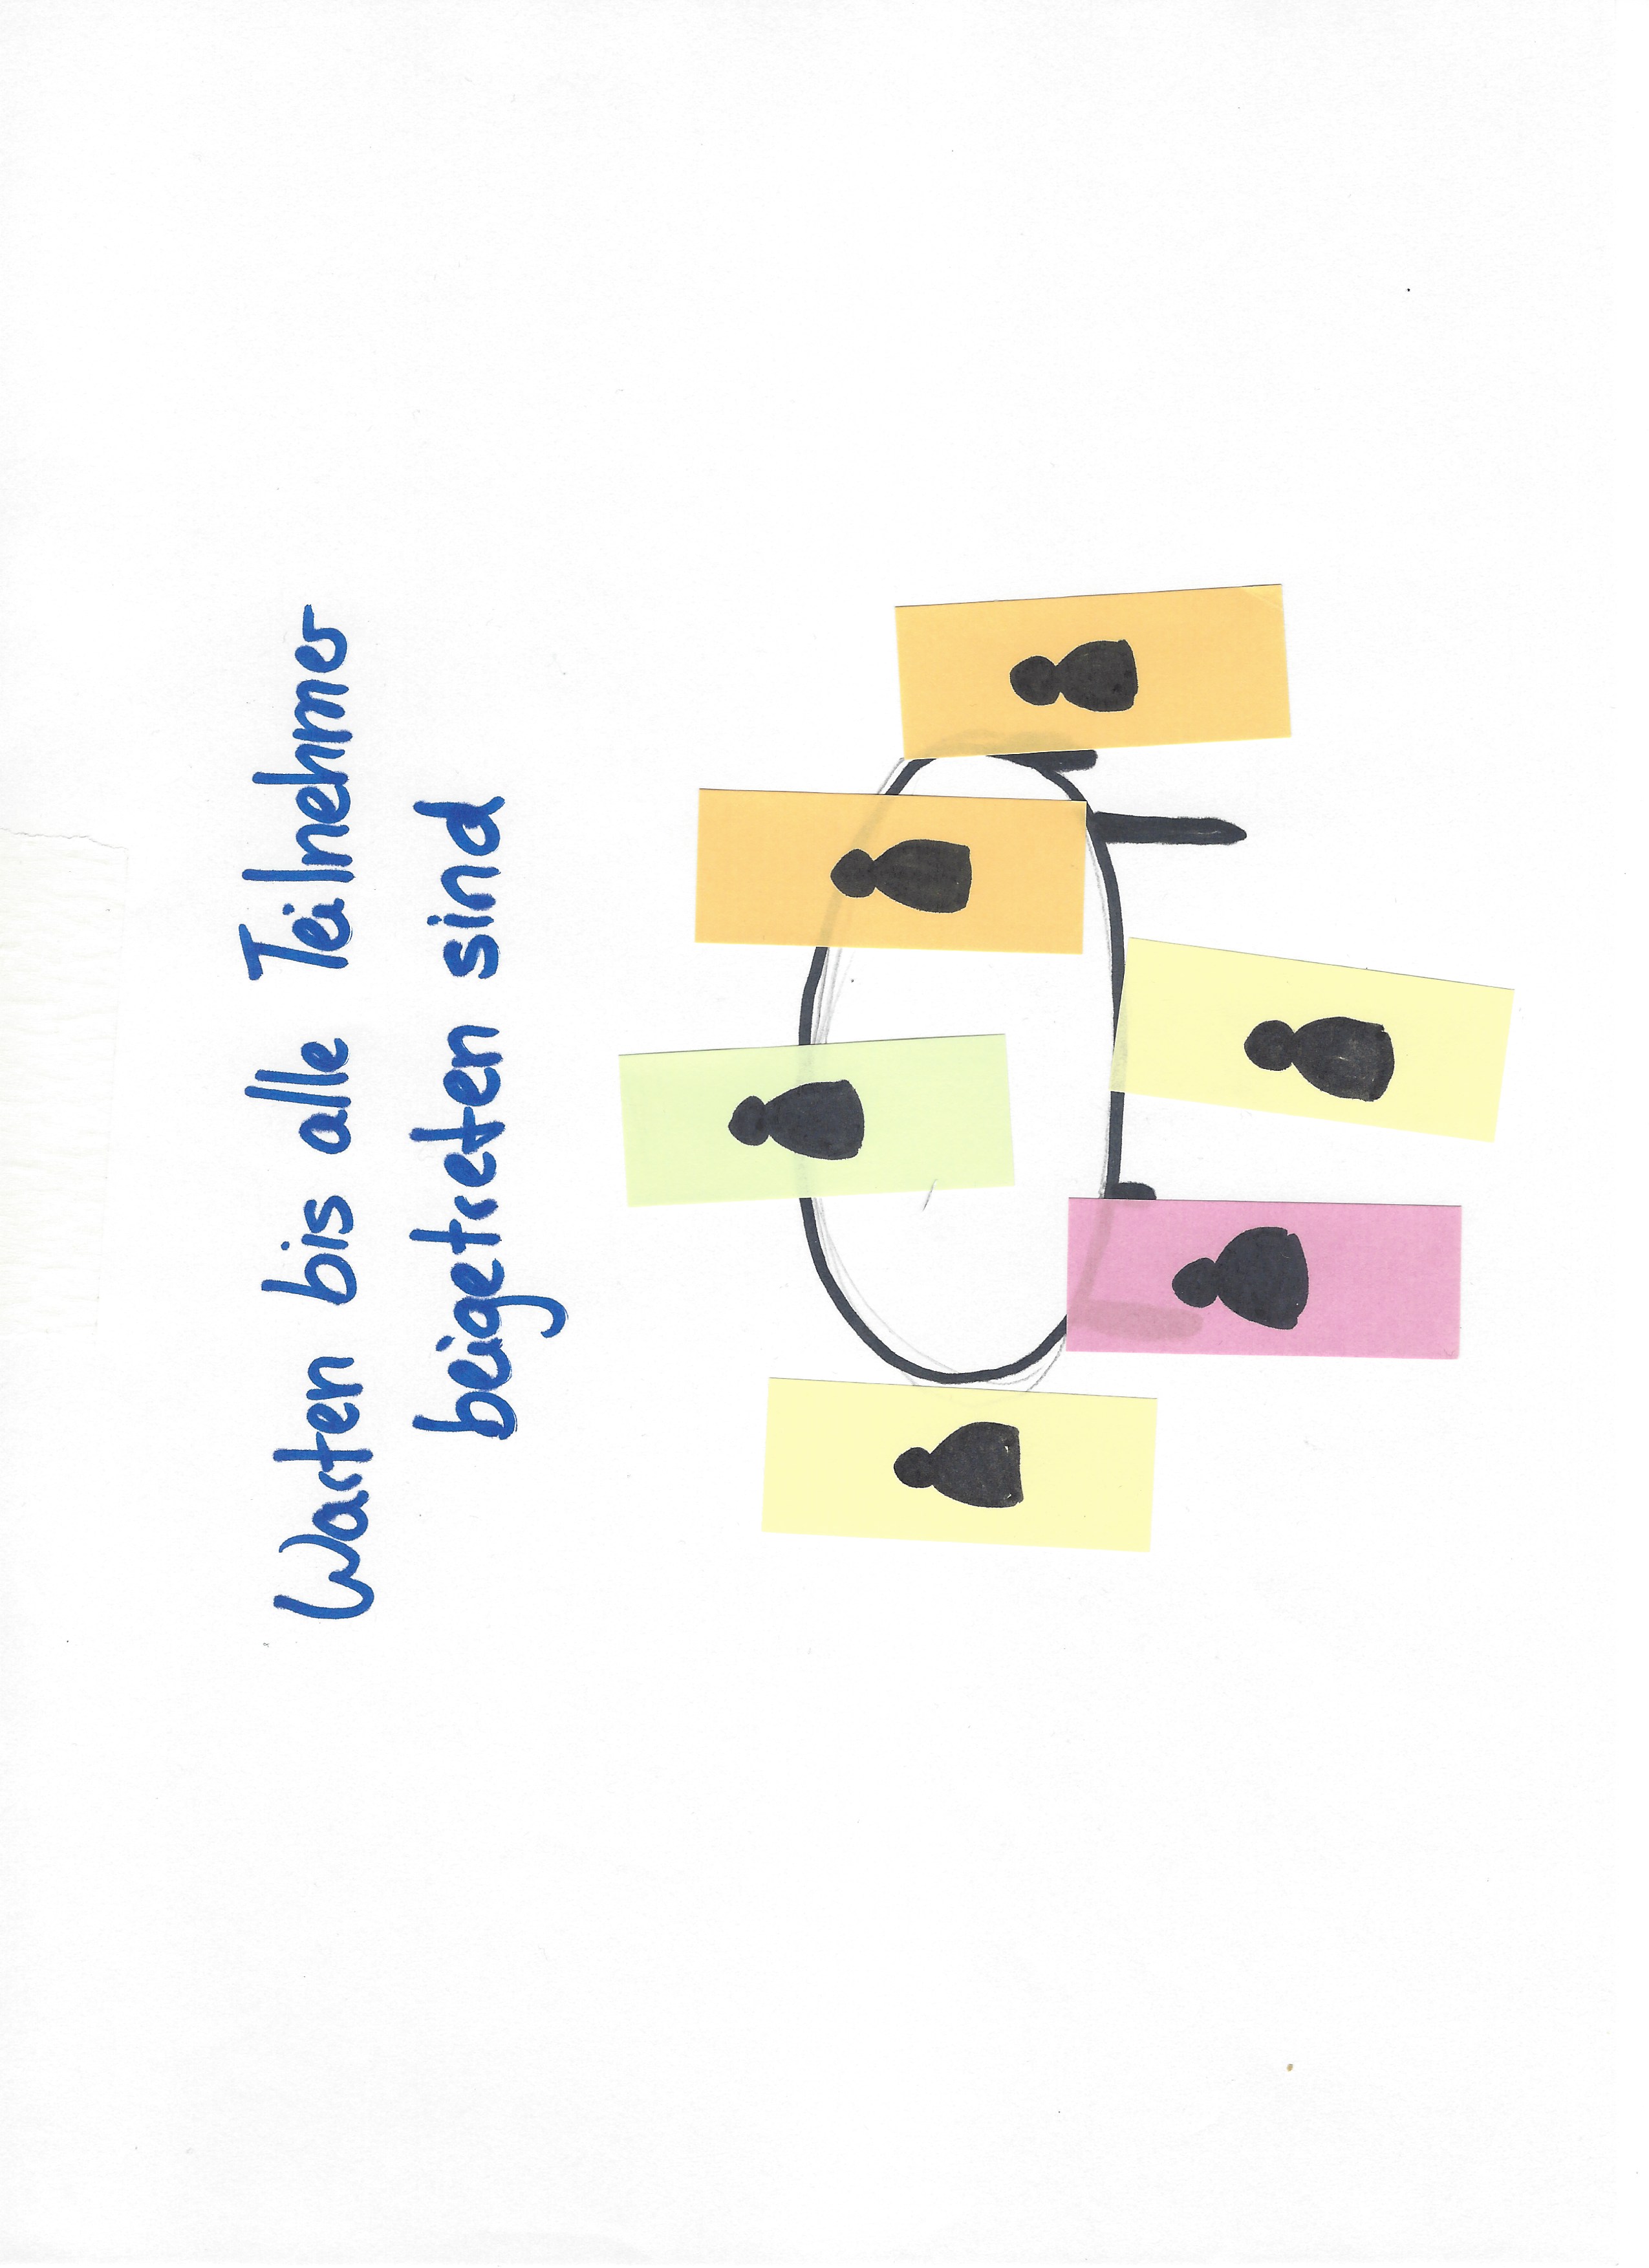 Warten bis alle Teilnehmer
beigetreten sind